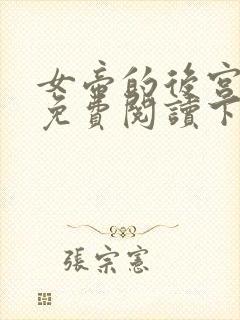 女帝的後宮
免費閱讀下
張宗憲